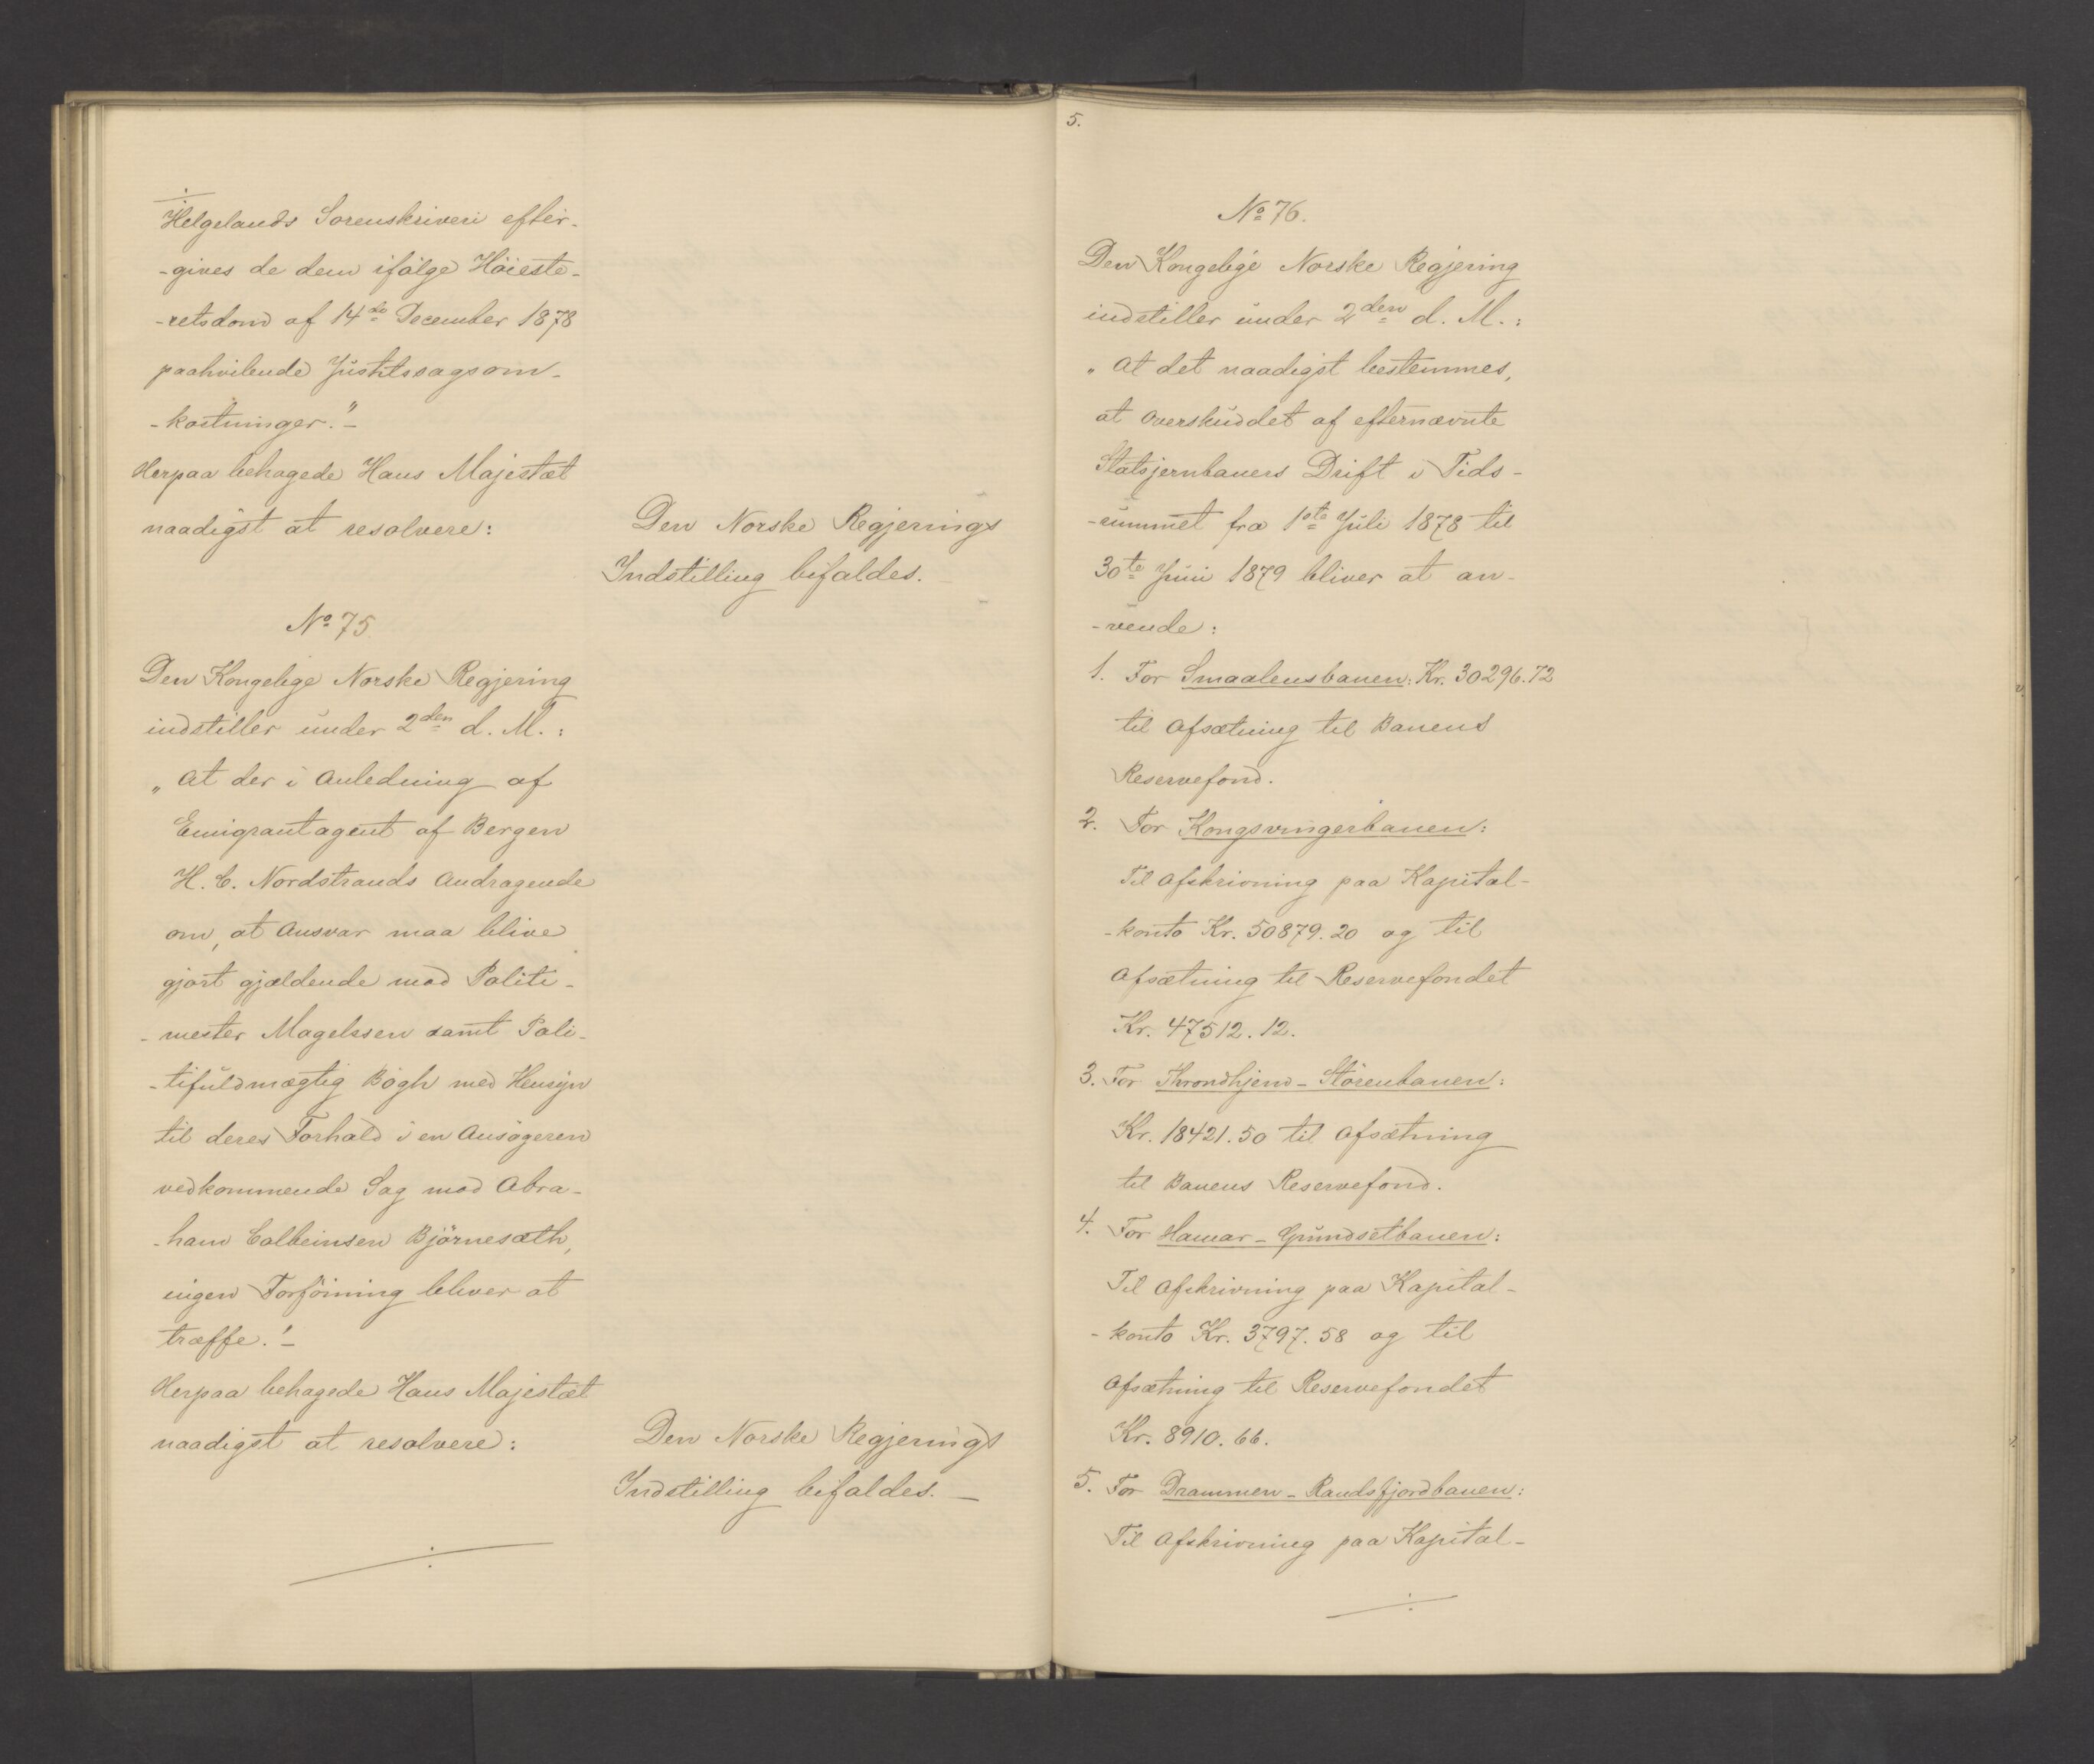 Helgelands Sorenskriveri efter-
-gives de dem ifølge Höieste-
-retsdom af 14de December 1878
paahvilende Justitssagsom-
-kostninger." -
Herpaa behagede Hans Majestæt
naadigst at resolvere:
Den Norske Regjerings
Indstilling bifaldes.
No 75
Den Kongelige Norske Regjering
indstiller under 2den d. M.:
„At der i Anledning af
Emigrantagent af Bergen
H. C. Nordstrands Andragende
om, at Ansvar maa blive
gjort gjældende mod Politi-
-mester Magelssen samt Poli-
-tifuldmægtig Bøgh med Hensyn
til deres Forhold i en Ansøgeren
vedkommende Sag mod Abra-
-ham Colbeinsen Björnesæth,
ingen Forföining bliver at
træffe." -
Herpaa behagede Hans Majestæt
naadigst at resolvere:
Den Norske Regjerings
Indstilling bifaldes. -
5.
No 76.
Den Kongelige Norske Regjering
indstiller under 2den d. M.:
„At det naadigst bestemmes,
at Overskuddet af efternævnte
Statsjernbaners Drift i Tids-
-rummet fra 1ste Juli 1878 til
30te Juni 1879 bliver at an-
-vende:
1. For Smaalensbanen: Kr. 30296.72
til Afsætning til Banens
Reservefond.
2. For Kongsvingerbanen:
Til Afskrivning paa Kapital-
-konto Kr. 50879.20 og til
Afsætning til Reservefondet
Kr. 47512.12.
3. For Throndhjem-Störenbanen:
Kr. 18421.50 til Afsætning
til Banens Reservefond.
4. For Hamar-Grundsetbanen:
Til Afskrivning paa Kapital-
-konto Kr. 3797.58 og til
Afsætning til Reservefondet
Kr. 8910.66.
5. For Drammen-Randsfjordbanen:
Til Afskrivning paa Kapital-